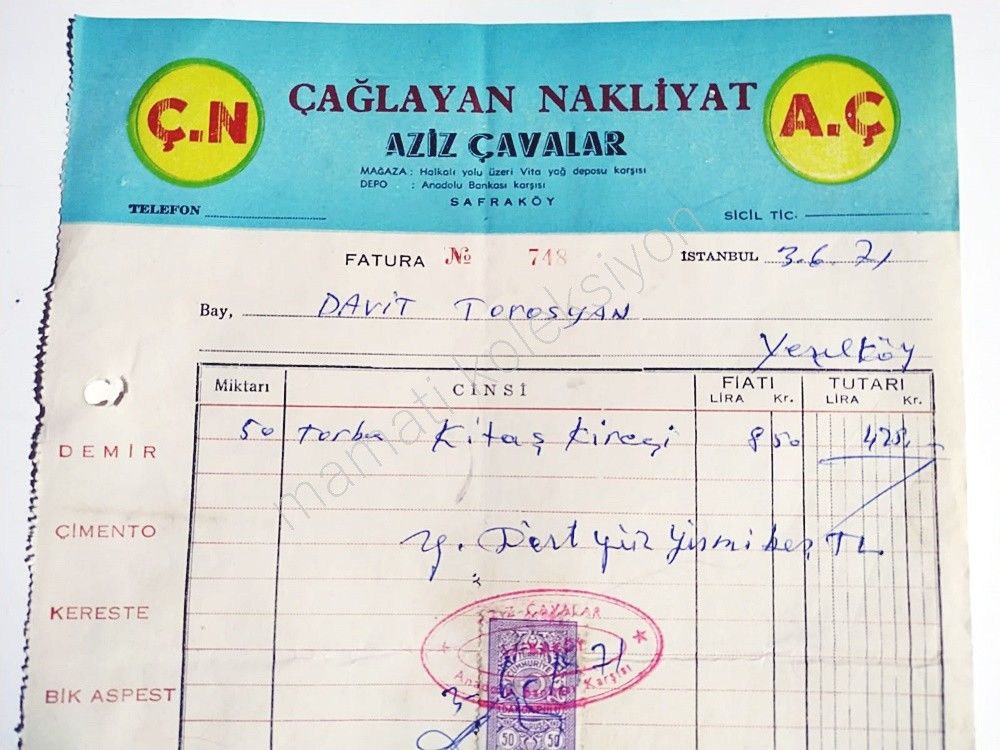 Ç.N
ÇAĞLAYAN NAKLİYAT
A.Ç
AZİZ ÇAVALAR
MAĞAZA : Halkalı yolu üzeri Vita yağ deposu karşısı
DEPO : Anadolu Bankası karşısı
SAFRAKÖY
TELEFON
SİCİL TİC.
FATURA № 748
İSTANBUL 3.6.71
Bay, DAViT Torosyan
Yeşilköy
Miktarı CİNSİ FİATI LİRA Kr. TUTARI LİRA Kr.
50 torba Kitaş Kireçi 8 50 425,
DEMİR
ÇİMENTO
y. Dört yüz yirmi beş TL.
KERESTE
AZİZ ÇAVALAR
SAFRAKÖY
Anadolu Bankası Karşısı
CUMHURİYETİ
DAMGA PULU
50 50
3 71
BİK ASPEST
mamati koleksiyon